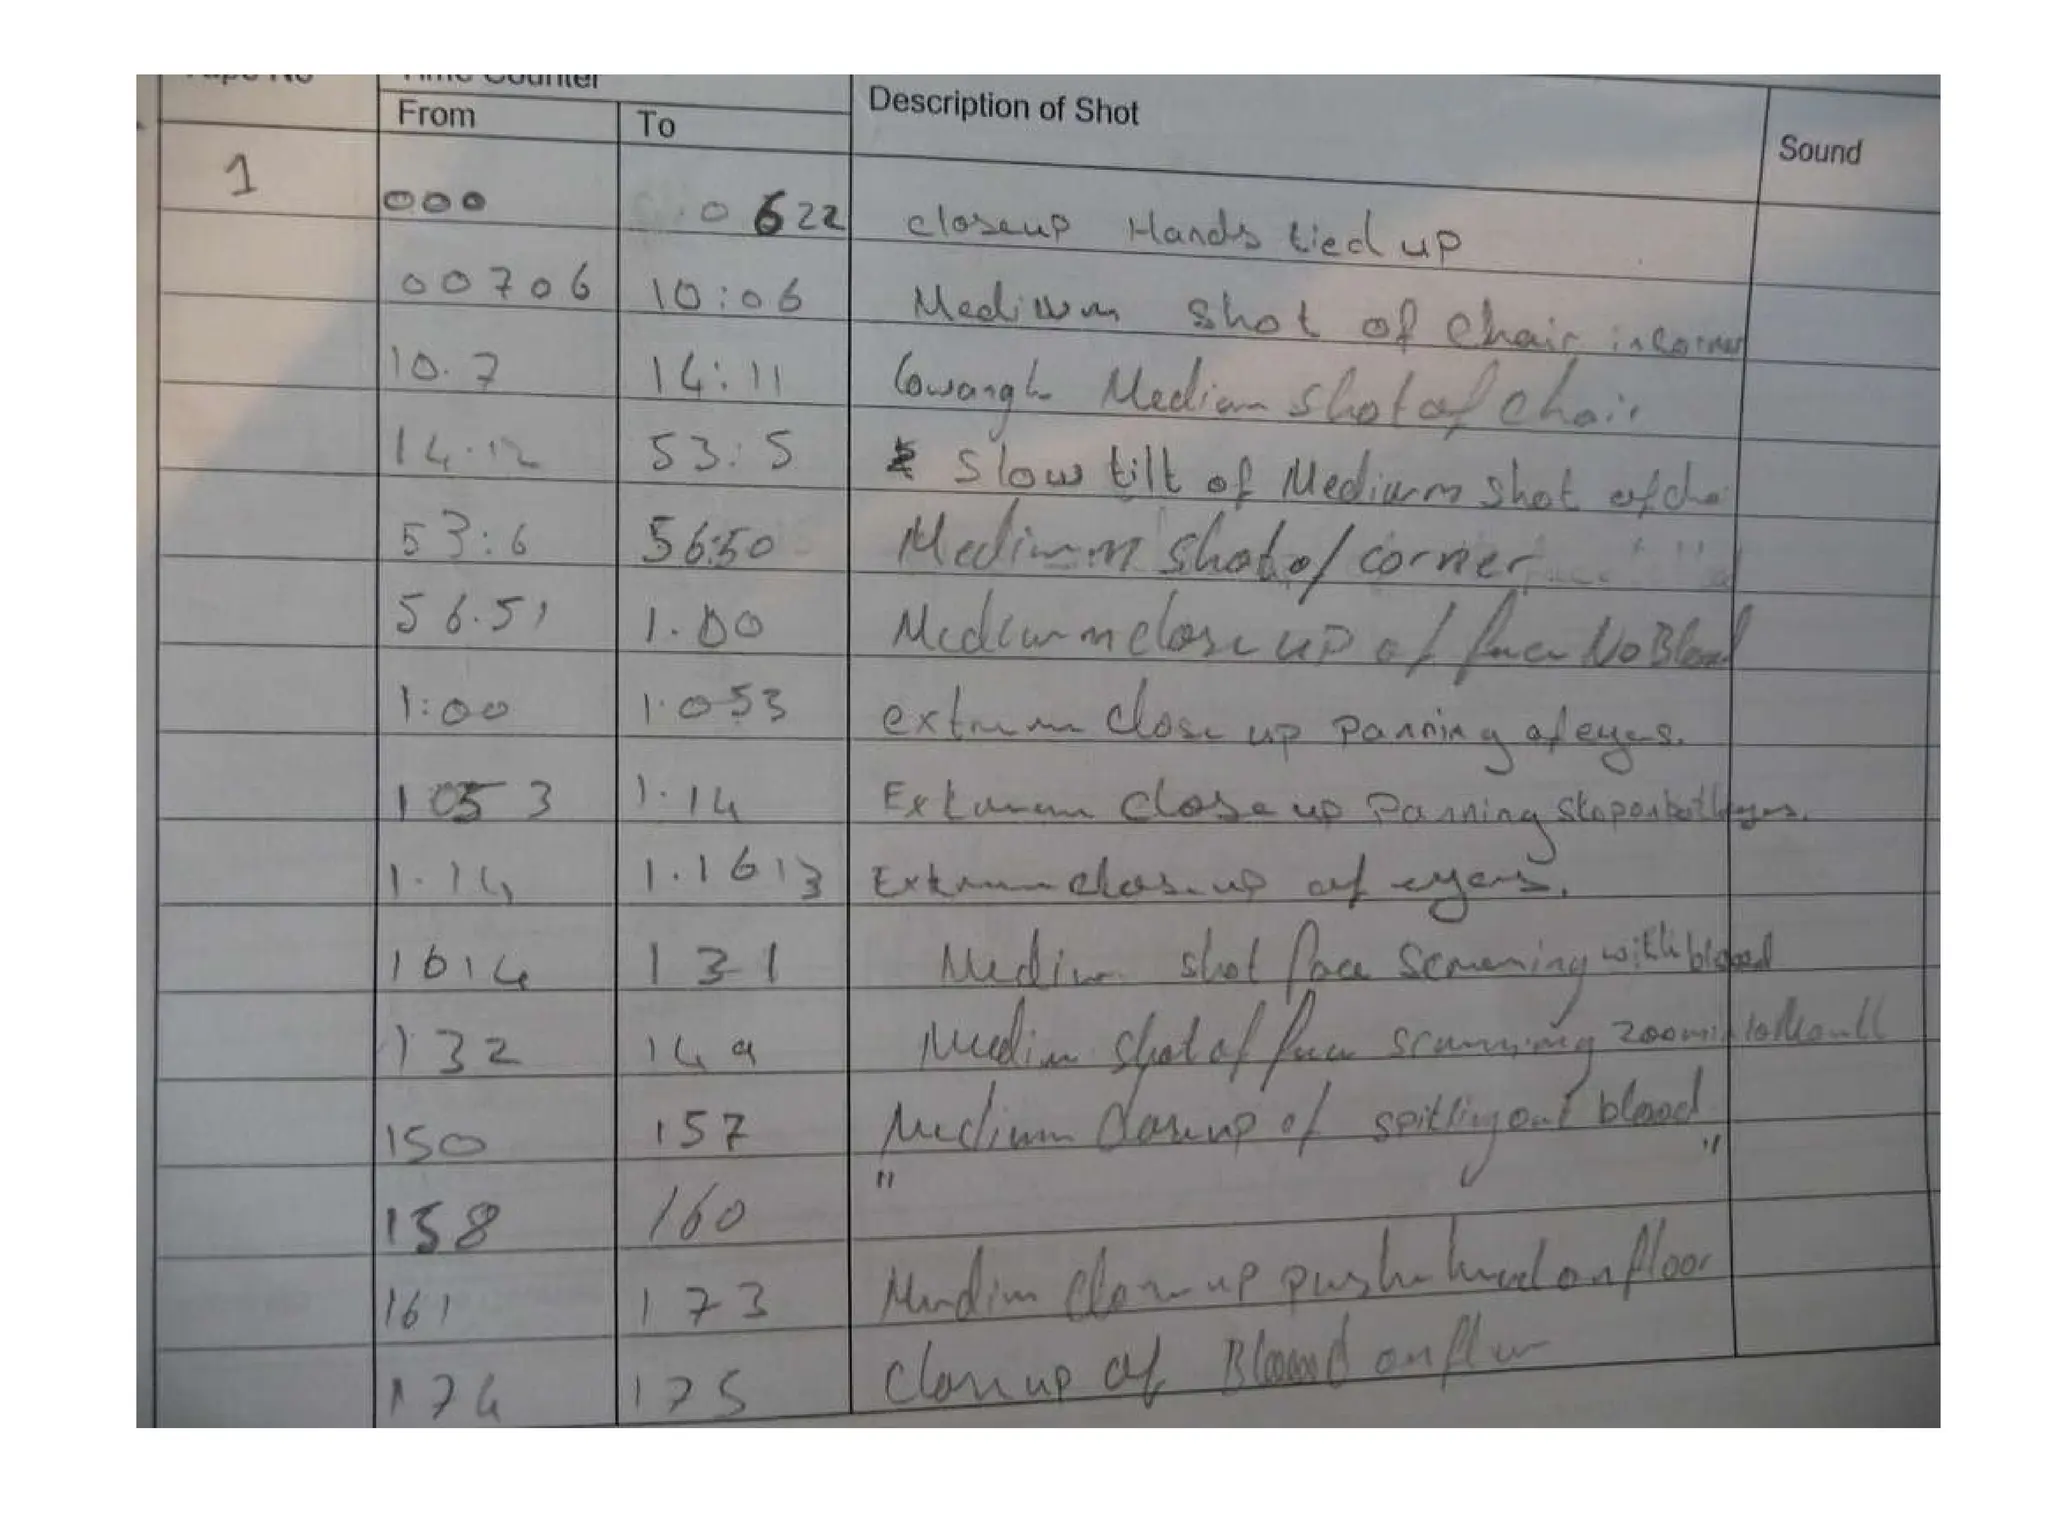 Tape No Time Counter
From To Description of Shot Sound
1 000 0622 closeup Hands tied up
00706 10:06 Medium shot of chair in corner
10.7 14:11 lowangle Medium shot of chair
14.12 53:5 Slow tilt of Medium shot of
53:6 56:50 Medium shot of corner
56.51 1.00 Medium close up of face No Blood
1:00 1.053 extreme close up panning of eyes.
1053 1.14 Extreme close up panning stop on both eyes.
1.14 1.1613 Extreme close up of eyes.
1614 131 Medium shot face screaming with blood
1:32 149 Medium shot of face screaming zoom in to Mouth
150 157 Medium closeup of spitting out blood
158 160 " "
161 173 Medium close up head on floor
174 175 closeup of Blood on floor